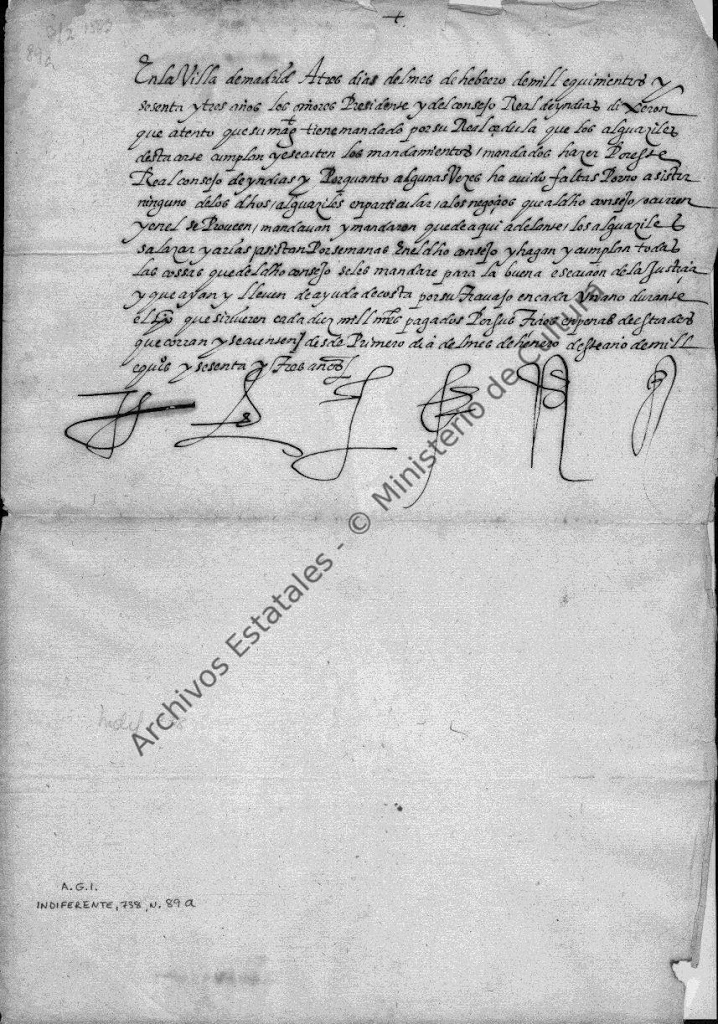 +
3/2 1563
89a
En la Villa de madrid A tres dias del mes de hebrero de mill e quinientos y
sesenta y tres años los señores Presidente y del consejo Real de yndias dixeron
que atento que su mag.t tiene mandado por su Real cedula que los alguaziles
desta corte cumplan y esecuten los mandamientos / mandados hazer Por este
Real consejo de yndias y Porquanto algunas Vezes ha auido faltas Por no asistir
ninguno de los dhos / alguaziles en particular / a los negoçios que al dho consejo / ocurren
y en el se Proueen / mandauan y mandaron que de aqui adelante / los alguaziles
salazar y arias asistan Por semanas En el dho consejo y hagan y cumplan todas
las cossas que del dho consejo se les mandare para la buena esecuçion de la Justiçia
y que ayan y lleuen de ayuda de costa por su Trauajo en cada Un año durante
el tpo que siruieren cada diez mill mrs pagados Por sus Terçios en penas de estrados
que corran y se quenten / desde Primero dia del mes de henero deste año de mill
e qui.os y sesenta y Tres años /
Archivos Estatales - © Ministerio de Cultura
A.G.I.
INDIFERENTE, 738, N. 89a